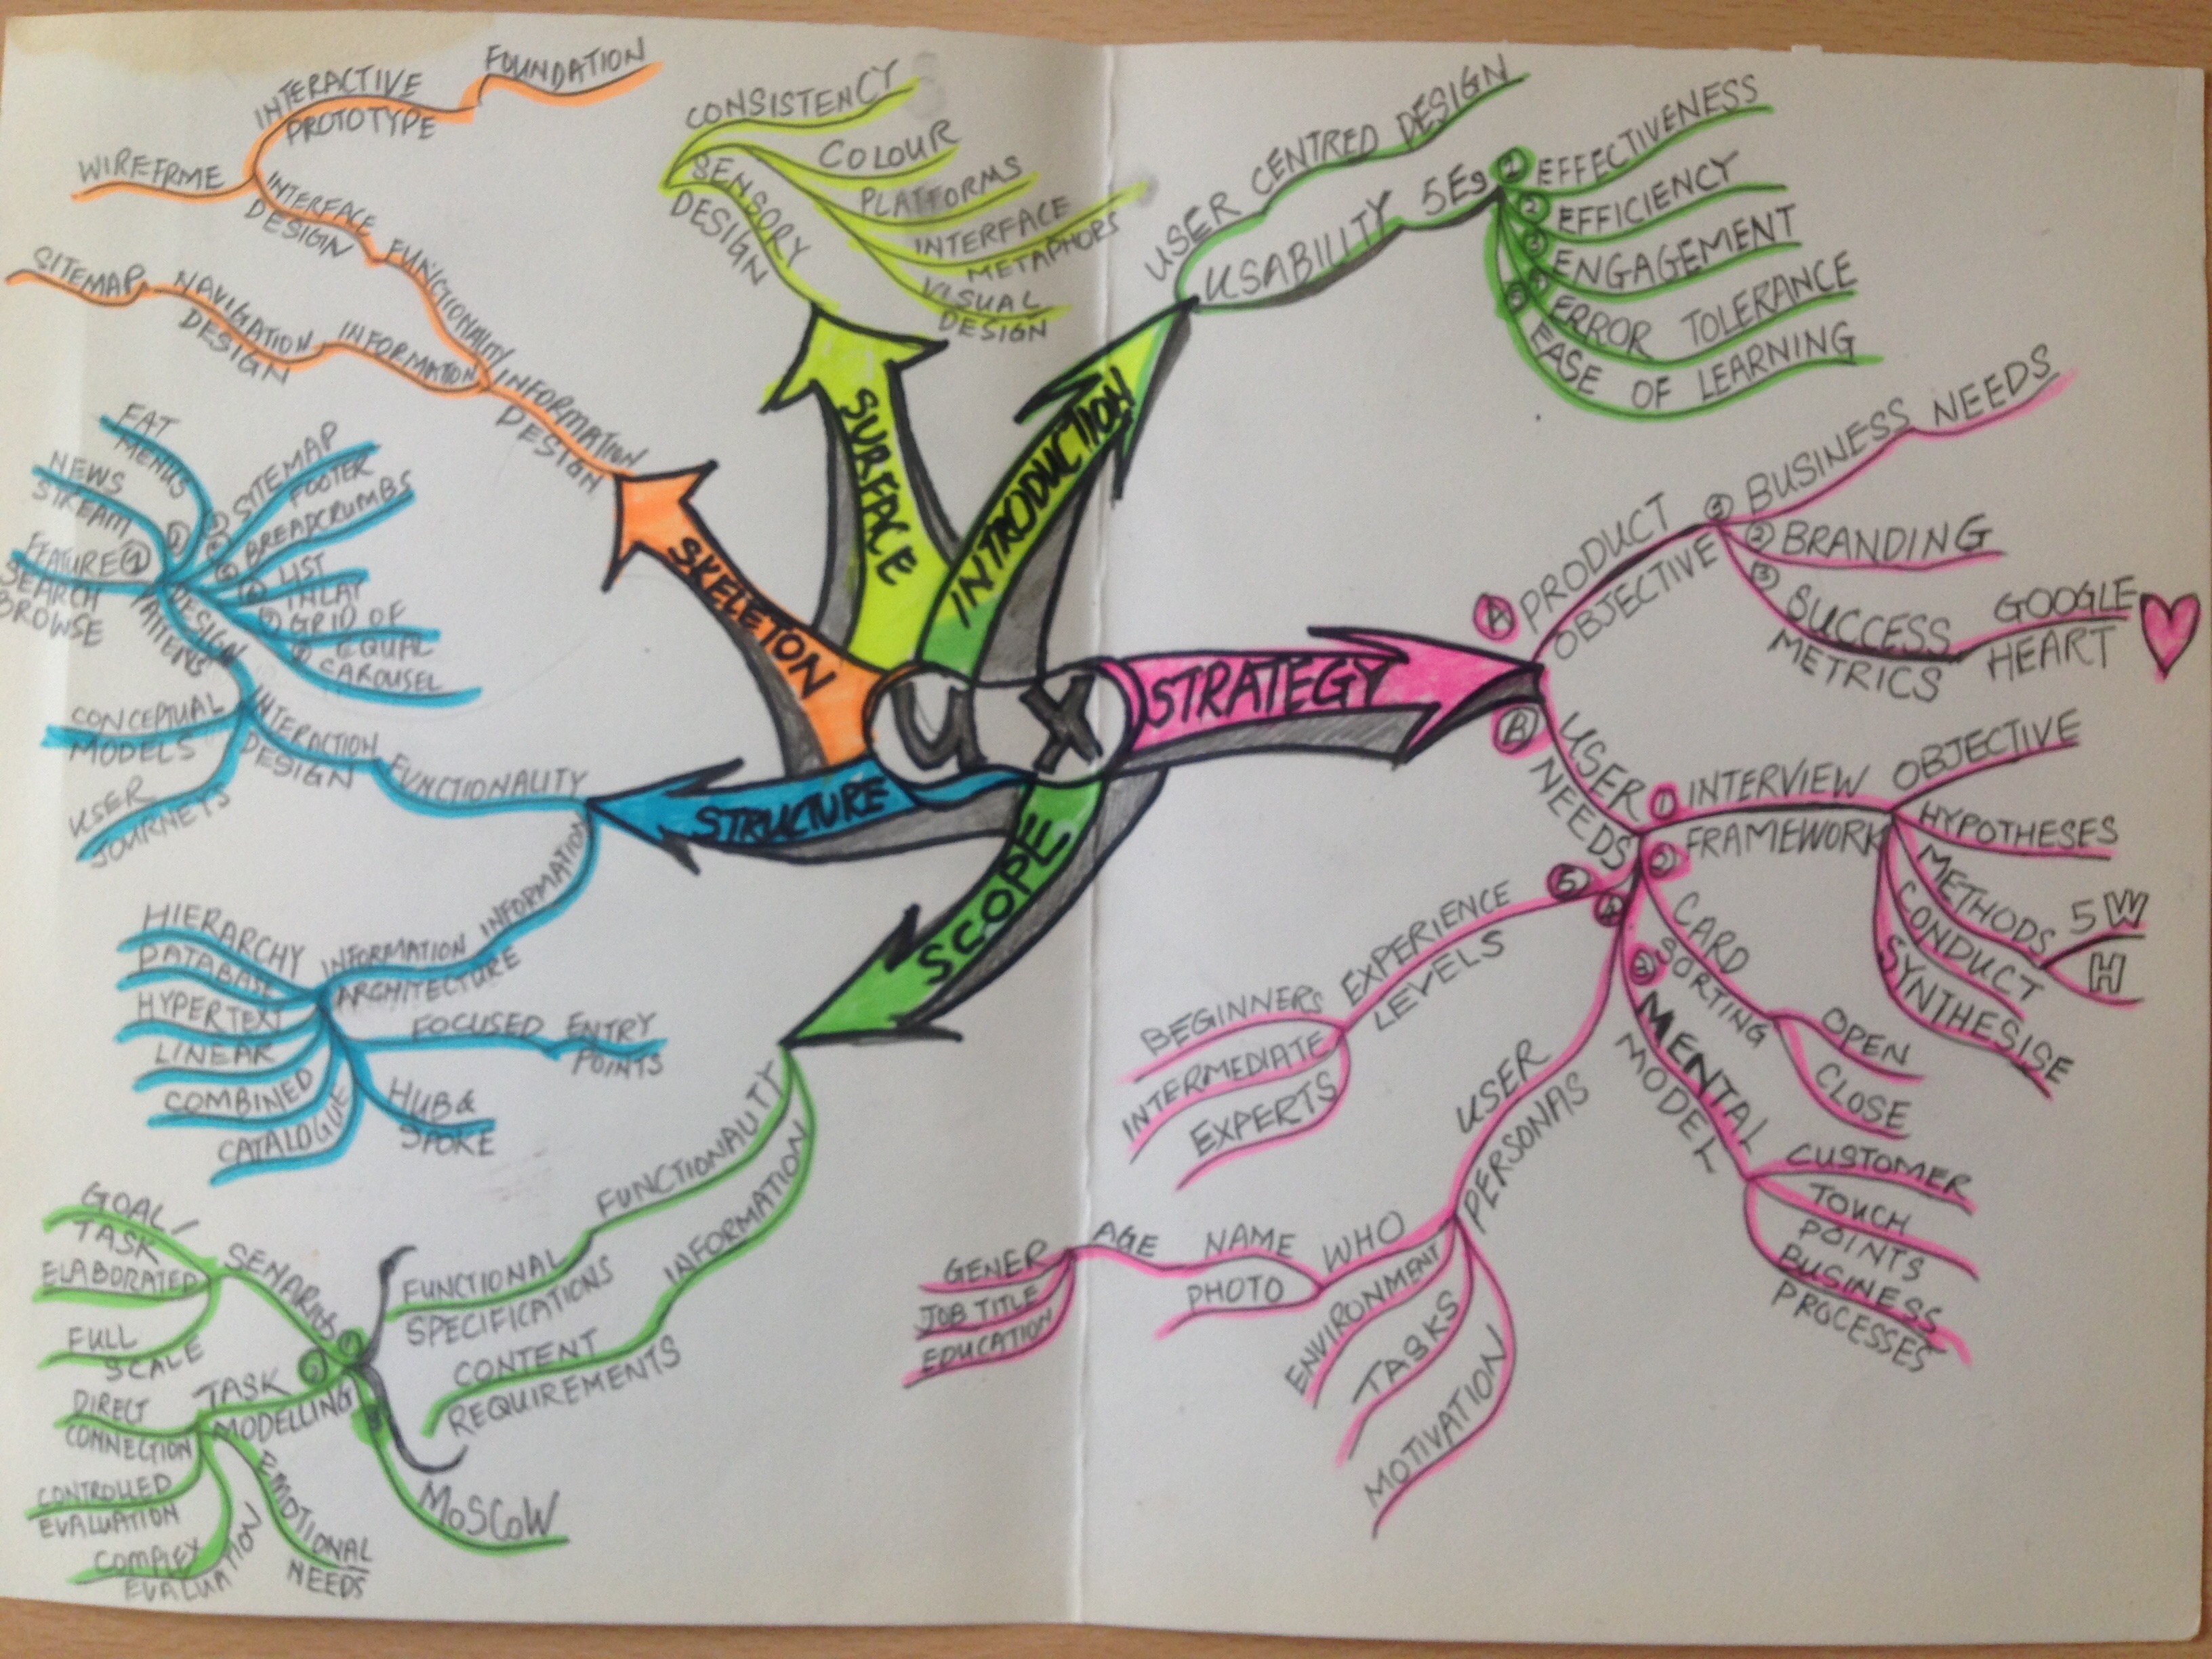 UX
INTRODUCTION
USER CENTRED DESIGN
USABILITY 5Es
1 EFFECTIVENESS
2 EFFICIENCY
3 ENGAGEMENT
4 ERROR TOLERANCE
5 EASE OF LEARNING
STRATEGY
A PRODUCT
OBJECTIVE
BUSINESS NEEDS
2 BRANDING
3 SUCCESS
METRICS
GOOGLE
HEART
B USER
NEEDS
1 INTERVIEW
FRAMEWORK
OBJECTIVE
HYPOTHESES
METHODS
5W
H
CONDUCT
SYNTHESISE
2 CARD
SORTING
OPEN
CLOSE
3 MENTAL
MODEL
CUSTOMER
TOUCH
POINTS
BUSINESS
PROCESSES
4 USER
PERSONAS
WHO
NAME
AGE
GENER
JOB TITLE
EDUCATION
PHOTO
ENVIRONMENT
TASKS
MOTIVATION
5 EXPERIENCE
LEVELS
BEGINNERS
INTERMEDIATE
EXPERTS
SCOPE
FUNCTIONALITY
FUNCTIONAL
SPECIFICATIONS
INFORMATION
CONTENT
REQUIREMENTS
SENARIOS
GOAL/
TASK
ELABORATED
FULL
SCALE
TASK
MODELLING
DIRECT
CONNECTION
CONTROLLED
EVALUATION
COMPLEX
EVALUATION
EMOTIONAL
NEEDS
MoSCoW
STRUCTURE
FUNCTIONALITY
INTERACTION
DESIGN
DESIGN
PATTENS
FAT
MENUS
NEWS
STREAM
FEATURE 1
SEARCH
BROWSE
SITEMAP
FOOTER
BREADCRUMBS
LIST
INLAY
GRID OF
EQUAL
CAROUSEL
CONCEPTUAL
MODELS
USER
JOURNEYS
INFORMATION
INFORMATION
ARCHITECTURE
HIERARCHY
DATABASE
HYPERTEXT
LINEAR
COMBINED
CATALOGUE
FOCUSED ENTRY
POINTS
HUB &
SPOKE
SKELETON
INFORMATION
DESIGN
FUNCTIONALITY
INTERFACE
DESIGN
WIREFRME
INTERACTIVE
PROTOTYPE
FOUNDATION
INFORMATION
NAVIGATION
DESIGN
SITEMAP
SURFACE
SENSORY
DESIGN
CONSISTENCY
COLOUR
PLATFORMS
INTERFACE
METAPHORS
VISUAL
DESIGN